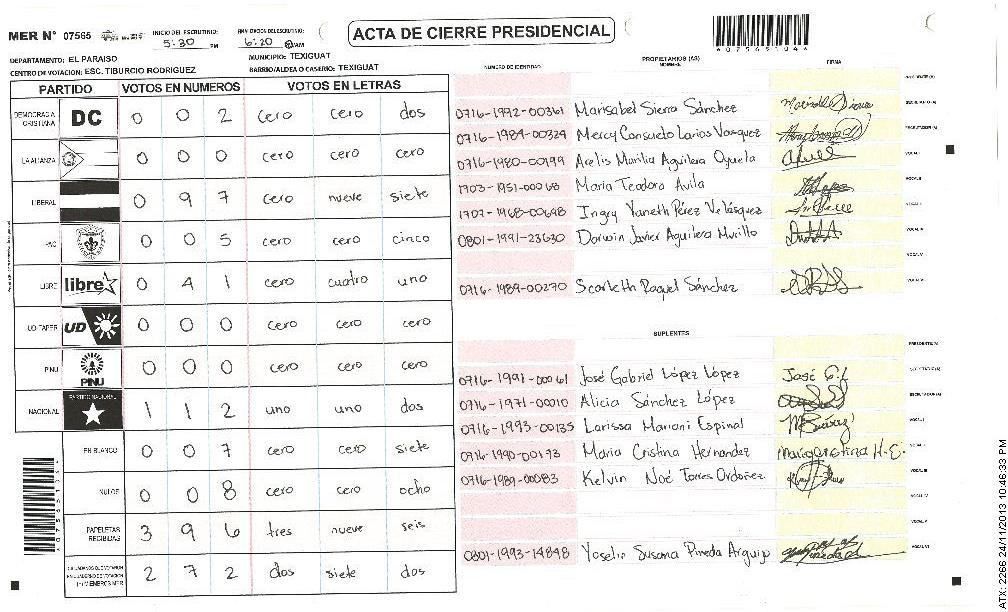 MER N° 07565
INICIO DEL ESCRUTINIO:
5:30 PM
6:20
ACTA DE CIERRE PRESIDENCIAL
DEPARTAMENTO: EL PARAISO
MUNICIPIO: TEXIGUAT
CENTRO DE VOTACION: ESC. TIBURCIO RODRIGUEZ
BARRIO/ALDEA O CASERIO: TEXIGUAT
PARTIDO VOTOS EN NUMEROS VOTOS EN LETRAS
DEMOCRACIA CRISTIANA DC 0 0 2 cero cero dos
LA ALIANZA 0 0 0 cero cero cero
LIBERAL 0 9 7 cero nueve siete
PAC 0 0 5 cero cero cinco
LIBRE libre 0 4 1 cero cuatro uno
UD-FAPER UD 0 0 0 cero cero cero
PINU PINU 0 0 0 cero cero cero
NACIONAL PARTIDO NACIONAL 1 1 2 uno uno dos
EN BLANCO 0 0 7 cero cero siete
NULOS 0 0 8 cero cero ocho
PAPELETAS RECIBIDAS 3 9 6 tres nueve seis
2 7 2 dos siete dos
NUMERO DE IDENTIDAD
PROPIETARIOS (AS)
NOMBRE
FIRMA
0716-1992-00361 Marisabel Sierra Sánchez
0716-1984-00329 Mercy Consuelo Larios Vasquez
0716-1980-00199 Arelis Marilia Aguilera Oyuela
1703-1951-00068 Maria Teodora Avila
1707-1968-00648 Ingry Yaneth Pérez Velásquez
0801-1991-23630 Dorwin Javier Aguilera Murillo
0716-1989-00270 Scarleth Raquel Sánchez
SUPLENTES
0716-1991-00061 José Gabriel López López José G.L
0716-1971-00010 Alicia Sánchez López
0716-1993-00135 Larissa Mariani Espinal
0716-1990-00193 Maria Cristina Hernandez Mariacristina H.E.
0716-1989-00083 Kelvin Noé Torres Ordoñez
0801-1993-14848 Yoselin Susana Pineda Arguijo
ATX: 2266 24/11/2013 10:46:33 PM